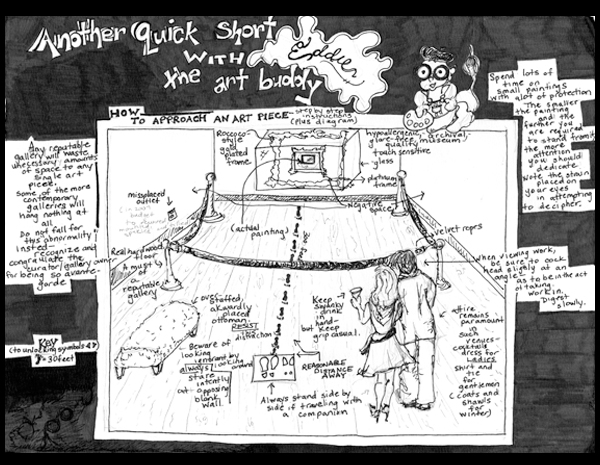 Another Quick Short
WITH
the art buddy
Eddie
HOW
TO APPROACH AN ART PIECE—
step by step
instructions
(plus diagram)
Spend lots of
time on
small paintings
with alot of protection
The smaller
the painting
and the
farther you
are required
to stand from it
the more
attention
you should
dedicate
Note the strain
placed on
your eyes
in attempting
to decipher.
Any reputable
gallery will waste
unecessary amounts
of space to any
single art
piece.
Some of the more
contemporary
galleries will
hang nothing at
all
Do not fall for
this abnormality
insted—
recognize and
congratulate the
curator/gallery owner
for being so avante-
garde
Roccoco-
style
gold
plated
frame
hypoallergenic, archival,
glare-free, museum
quality
touch sensitive
glass
plytinum
frame
negative
space
(actual
painting)
misplaced
outlet
velvet ropes
Real hardwood
floor
A must
a
reputable
gallery
When viewing work,
be sure to cock
head slighly at an
angle
as to be in the act
of taking
work in.
Digest
slowly.
KEY
(to unlocking symbols)
=30feet
over
stuffed,
akwardly
placed
ottoman.
RESIST
Beware of
looking
always
stare
intently
at opposing
blank
wall.
looking
around
Keep
drink
in
hand—
but keep
grip casual.
REASONABLE
DISTANCE
AWAY
attire
remains
paramount
in
such
venues—
cocktail
dress for
Ladies
shirt and
tie for
gentlemen
(coats and
shawls
for
winter)
Always stand side by
side if traveling with
a companion